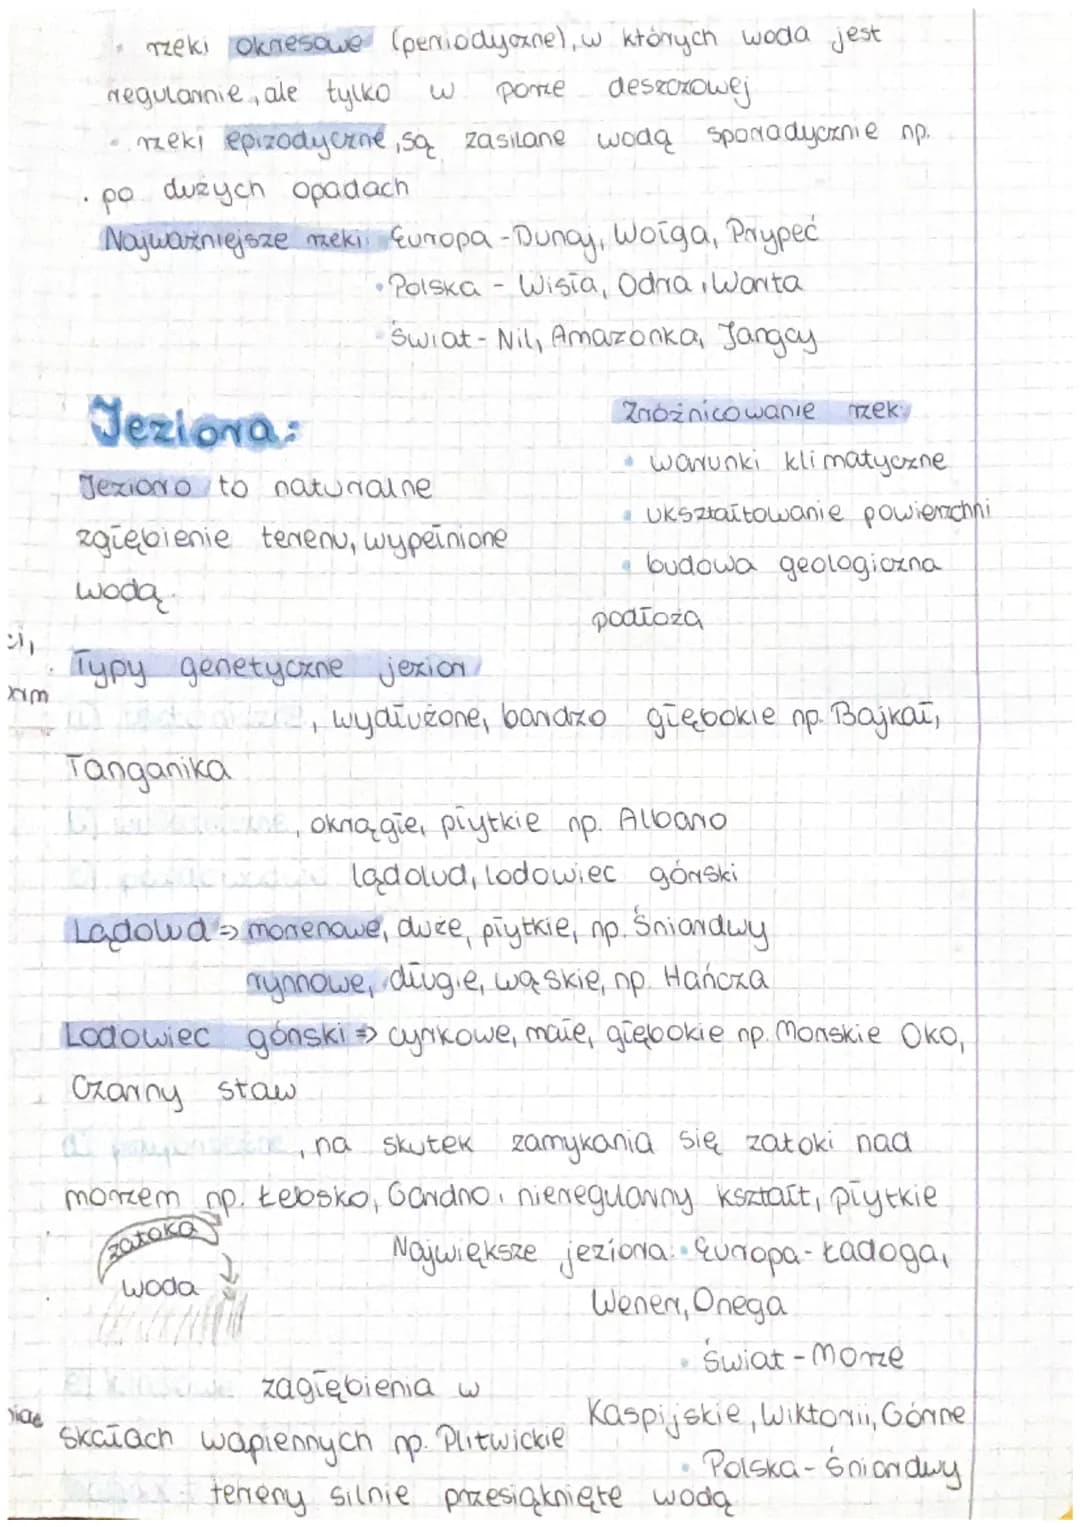 rzeki okresowe (periodyczne), w których woda jest
regularnie, ale tylko w porze deszczowej
rzeki epizodyczne, są zasilane wodą sporadycznie np.
po dużych opadach
Najważniejsze rzeki: Europa - Dunaj, Wołga, Prypeć
• Polska - Wisła, Odra, Warta
• Świat - Nil, Amazonka, Jangcy
Jeziora:
Jezioro to naturalne
zgłębienie terenu, wypełnione
wodą.
Zróżnicowanie rzek:
• warunki klimatyczne
• ukształtowanie powierzchni
• budowa geologiczna
podłoża
Typy genetyczne jezior
, wydłużone, bardzo głębokie np. Bajkał,
Tanganika
, okrągłe, płytkie np. Albano
lądolud, lodowiec górski
Lądolud => morenowe, duże, płytkie, np. Śniardwy
rynnowe, długie, wąskie, np. Hańcza
Lodowiec górski => cyrkowe, małe, głębokie np. Morskie Oko,
Czarny staw
, na skutek zamykania się zatoki nad
morzem np. Łebsko, Gardno, nieregularny kształt, płytkie
zatoka
woda
Największe jeziora: • Europa - Ładoga,
Wener, Onega
• Świat - Morze
Kaspijskie, Wiktorii, Górne
• Polska - Śniardwy
zagłębienia w
skałach wapiennych np. Plitwickie
tereny silnie przesiąknięte wodą